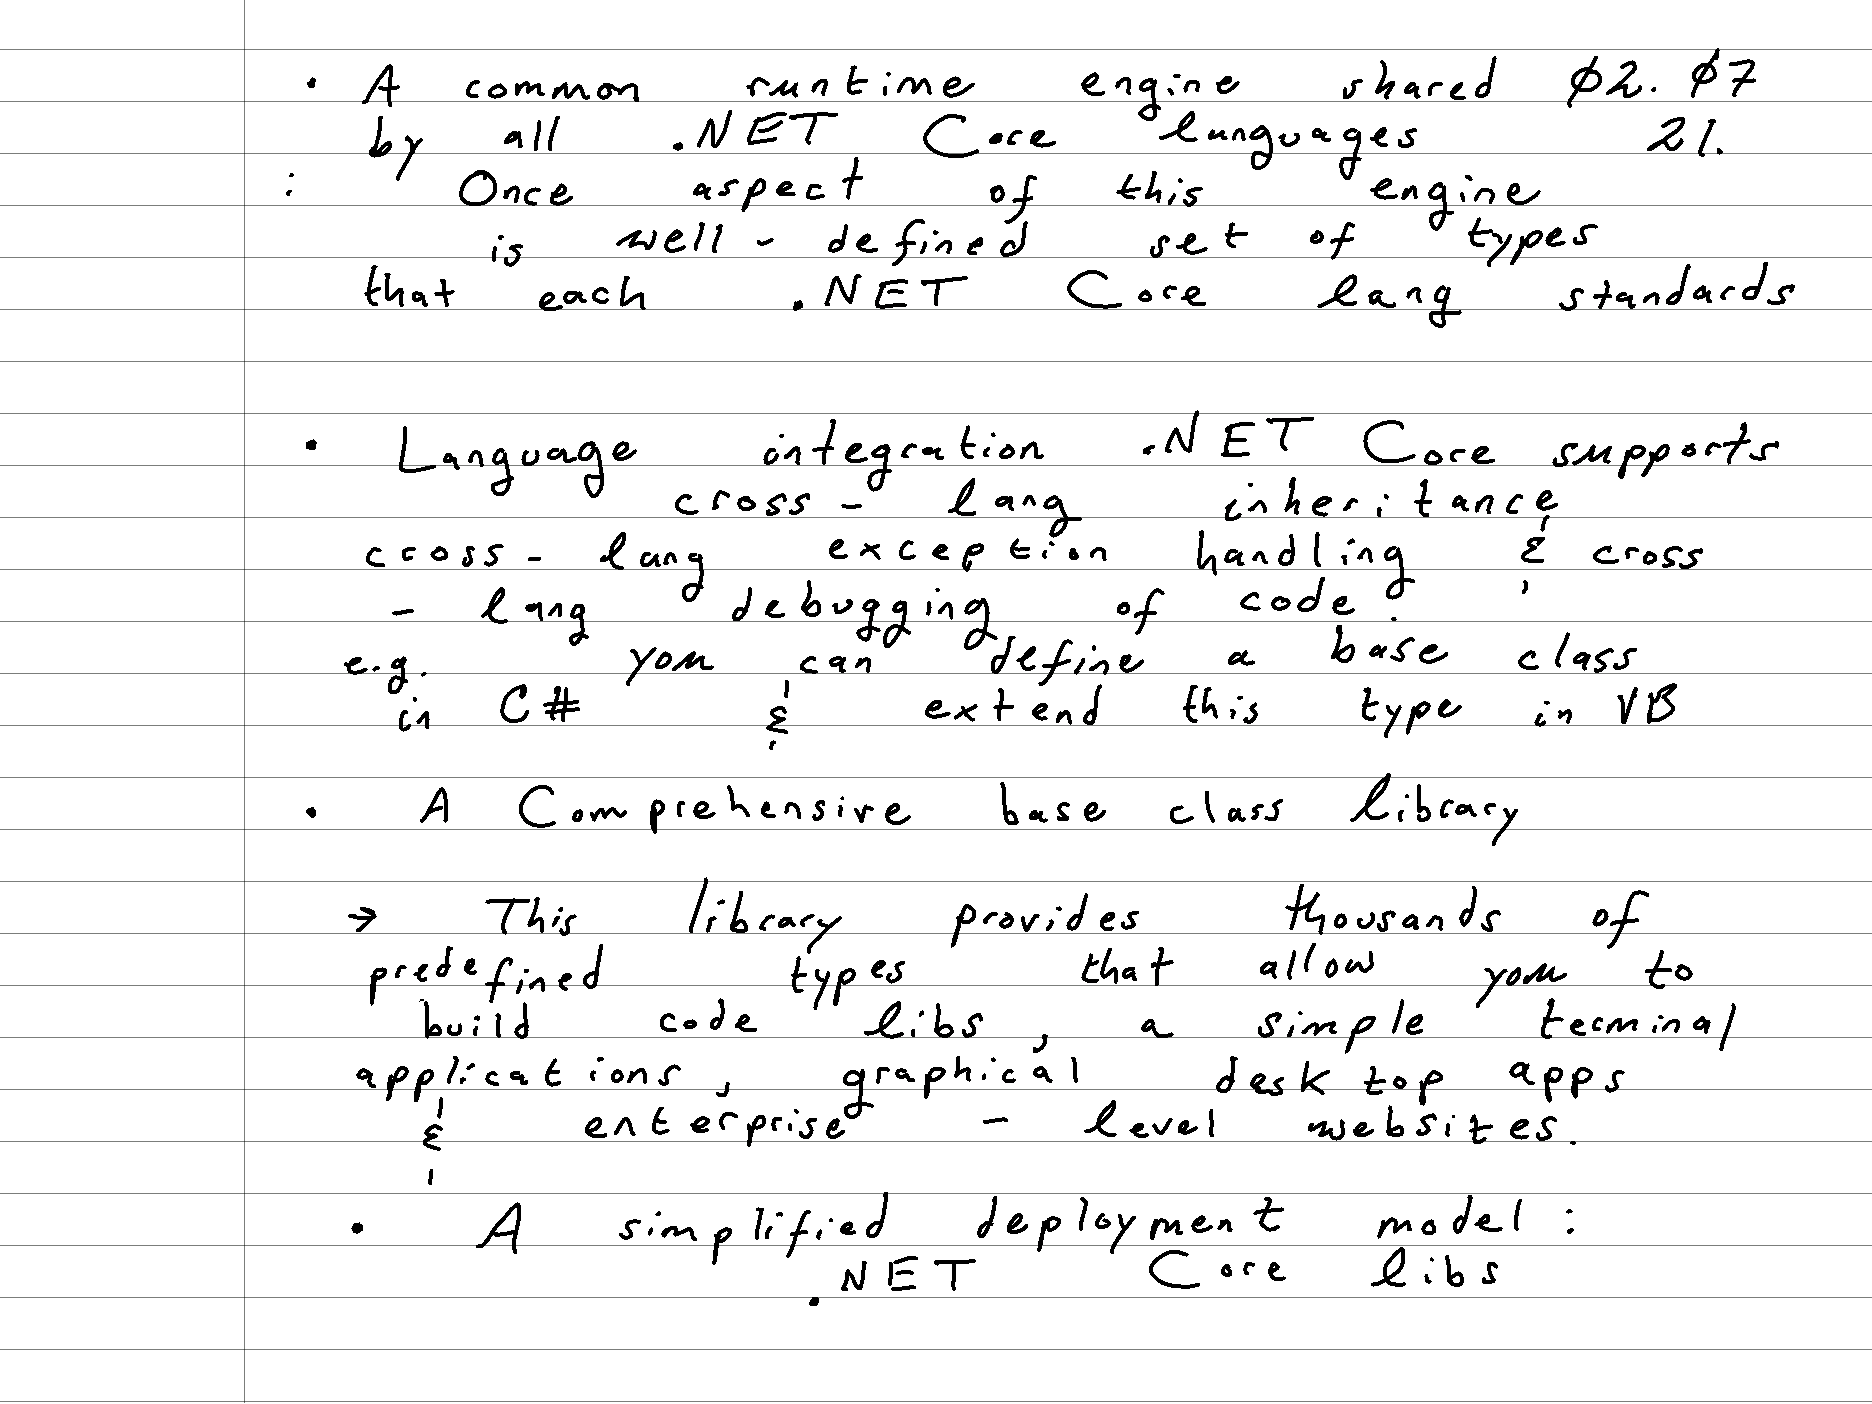 • A common runtime engine shared Ø2. Ø7
by all .NET Core languages 21.
: Once aspect of this engine
is well - defined set of types
that each .NET Core lang standards
• Language integration .NET Core supports
cross - lang inheritance
cross - lang exception handling & cross
- lang debugging of code
e.g. you can define a base class
in C# & extend this type in VB
• A Comprehensive base class library
→ This library provides thousands of
predefined types that allow you to
build code libs, a simple terminal
applications, graphical desktop apps
& enterprise - level websites.
• A simplified deployment model :
.NET Core libs